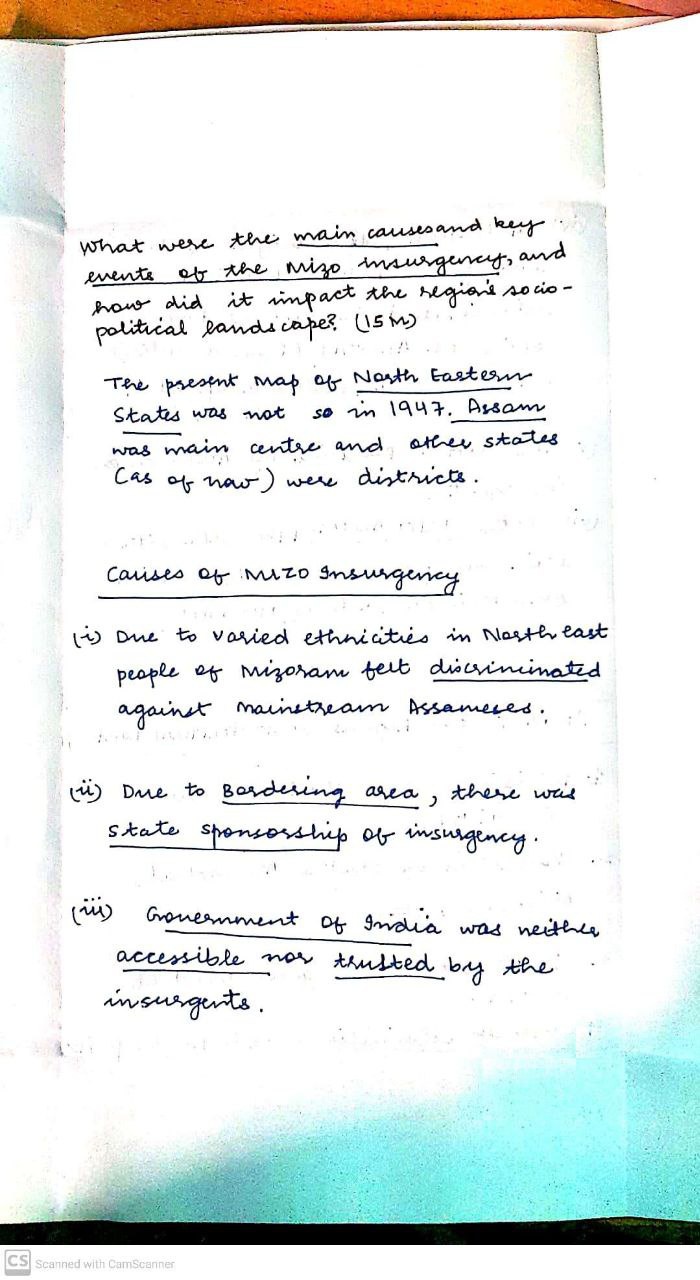 What were the main causes and key
events of the Mizo insurgency, and
how did it impact the region's socio-
political landscape? (15 M)
The present map of North Eastern
States was not so in 1947. Assam
was main centre and other states
(as of now) were districts.
Causes of MIZO Insurgency
(i) Due to varied ethnicities in North east
people of Mizoram felt discriminated
against mainstream Assameses.
(ii) Due to Bordering area, there was
state sponsorship of insurgency.
(iii) Government of India was neither
accessible nor trusted by the
insurgents.
CS Scanned with CamScanner